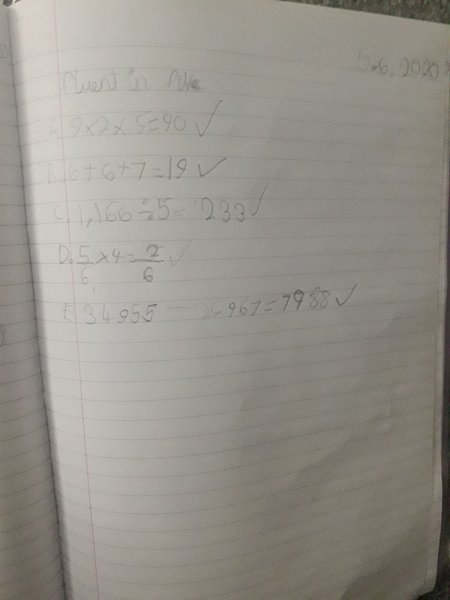 5.6.2020
Fluent in five
A. 9x2x5=90 ✓
B. 6+6+7=19 ✓
C. 1,166÷5= 233 ✓
D. 5/6 x4= 2/6 ✓
E. 34955 — 26967=7988 ✓